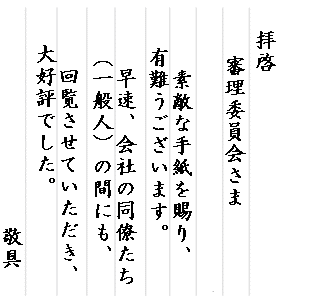 拝啓
審理委員会さま
素敵な手紙を賜り、
有難うございます。
早速、会社の同僚たち
（一般人）の間にも、
回覧させていただき、
大好評でした。
敬具